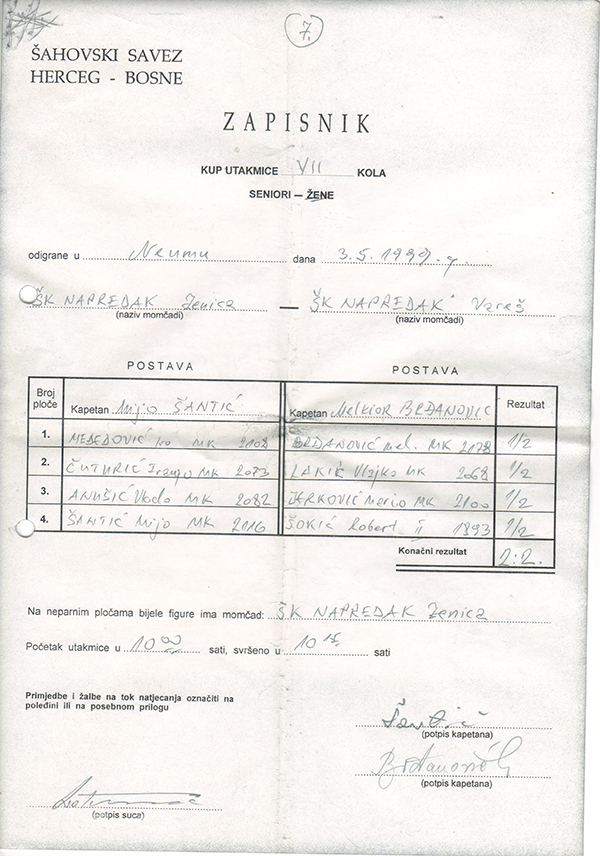 7.
ŠAHOVSKI SAVEZ
HERCEG - BOSNE
ZAPISNIK
KUP UTAKMICE VII KOLA
SENIORI – ŽENE
odigrane u Neumu dana 3.5.1999.g.
ŠK NAPREDAK Zenica — ŠK NAPREDAK Vareš
(naziv momčadi) (naziv momčadi)
POSTAVA POSTAVA
Broj ploče Kapetan Mijo ŠANTIĆ Kapetan Melkior BRĐANOVIĆ Rezultat
1. Ivo MK 2102 BRĐANOVIĆ Mel. MK 2178 1/2
2. ČUTURIĆ MK 2073 LAKIĆ Vlajko MK 2068 1/2
3. ANUŠIĆ Vlado MK 2082 JERKOVIĆ Mario MK 2100 1/2
4. ŠANTIĆ Mijo MK 2116 ŠOKIĆ Robert II 1893 1/2
Konačni rezultat 2:2.
Na neparnim pločama bijele figure ima momčad: ŠK NAPREDAK Zenica
Početak utakmice u 10 00 sati, svršeno u 10 15 sati
Primjedbe i žalbe na tok natjecanja označiti na
poleđini ili na posebnom prilogu
Šantić
(potpis kapetana)
Brđanović
(potpis kapetana)
(potpis suca)